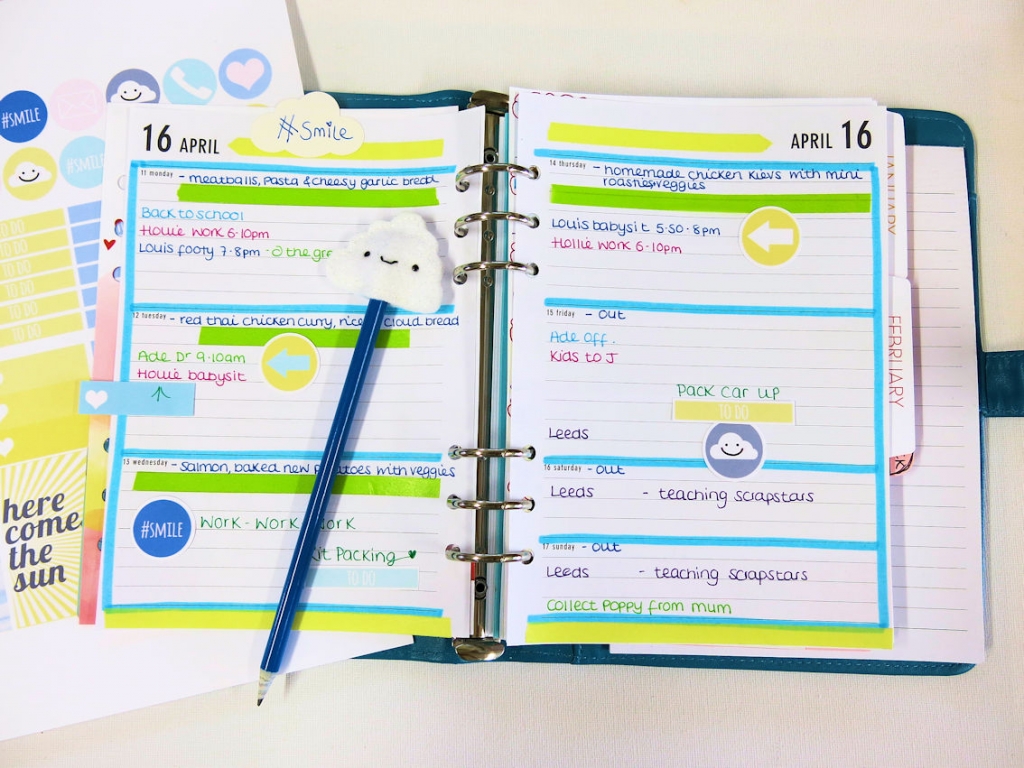 #SMILE
#SMILE
TO DO
TO DO
TO DO
TO DO
TO DO
TO DO
here
come
the
sun
16 APRIL
#Smile
11 monday - meatballs, pasta & cheesy garlic bread
Back to school
Hollie work 6-10pm
Louis footy 7-8pm - @ the gre
12 tuesday - red thai chicken curry, rice cloud bread
Ade Dr 9.10am
Hollie babysit
13 wednesday - salmon, baked new potatoes with veggies
#SMILE
Work - Work - Work
Kit Packing
TO DO
APRIL 16
14 thursday - homemade chicken kievs with mini
roasties + veggies
Louis babysit 5.50-8pm
Hollie work 6-10pm
15 friday - out
Ade off.
Kids to J
Pack car up
TO DO
Leeds
16 saturday - out
Leeds - teaching scrapstars
17 sunday - out
Leeds - teaching scrapstars
Collect Poppy from mum
JANUARY
FEBRUARY